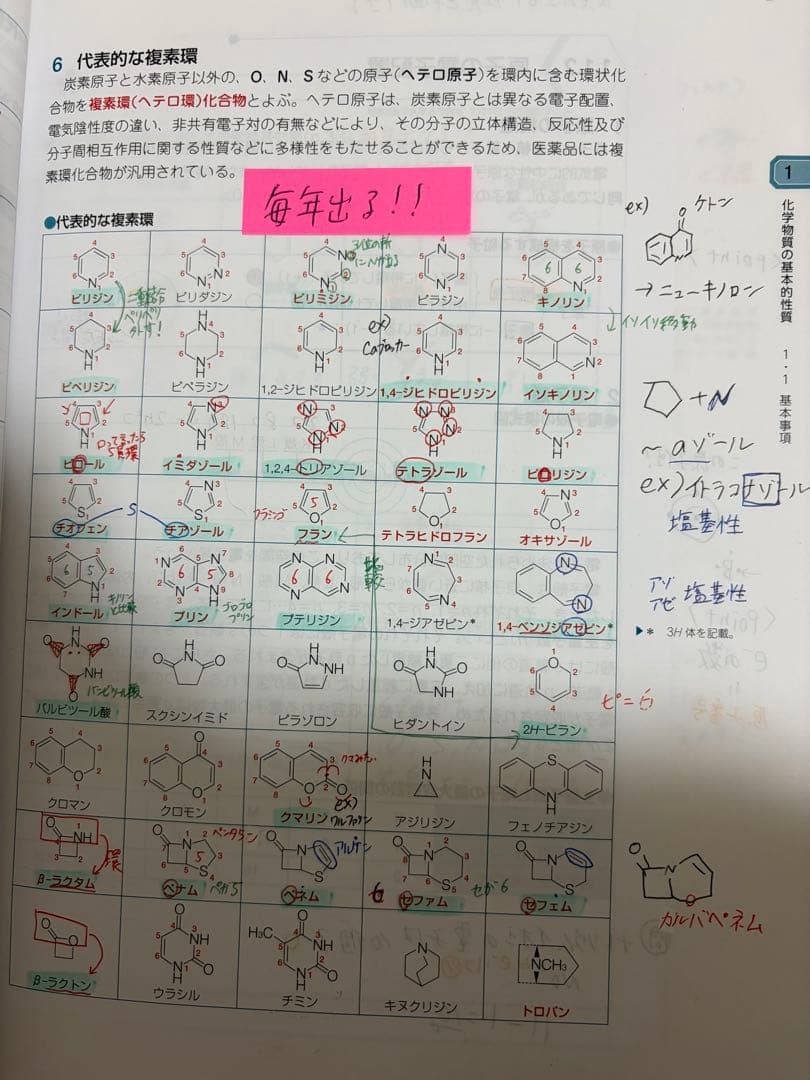 6 代表的な複素環
炭素原子と水素原子以外の、O、N、Sなどの原子(ヘテロ原子)を環内に含む環状化
合物を複素環(ヘテロ環)化合物とよぶ。ヘテロ原子は、炭素原子とは異なる電子配置、
電気陰性度の違い、非共有電子対の有無などにより、その分子の立体構造、反応性及び
分子間相互作用に関する性質などに多様性をもたせることができるため、医薬品には複
素環化合物が汎用されている。
毎年出る!!
●代表的な複素環
ピリジン
ピリダジン
ピリミジン
ピラジン
キノリン
ピペリジン
ピペラジン
1,2-ジヒドロピリジン
ex)
Caブロッカー
1,4-ジヒドロピリジン
イソキノリン
ピロール
イミダゾール
1,2,4-トリアゾール
テトラゾール
ピロリジン
チオフェン
S
チアゾール
フラン
テトラヒドロフラン
オキサゾール
インドール
キノリンと比較
プリン
プテリジン
1,4-ジアゼピン*
1,4-ベンゾジアゼピン*
バルビツール酸
スクシンイミド
ピラゾロン
ヒダントイン
2H-ピラン
クロマン
クロモン
クマリン
ex)
ワルファリン
アジリジン
フェノチアジン
β-ラクタム
環
ペナム
ペネム
アルケン
セファム
セフェム
β-ラクトン
ウラシル
チミン
キヌクリジン
トロパン
1
化学物質の基本的性質
1・1 基本事項
ex)
ケトン
→ニューキノロン
+N
〜aゾール
ex)イトラコナゾール
塩基性
アゾ
アゼ 塩基性
▶* 3H体を記載。
カルバペネム